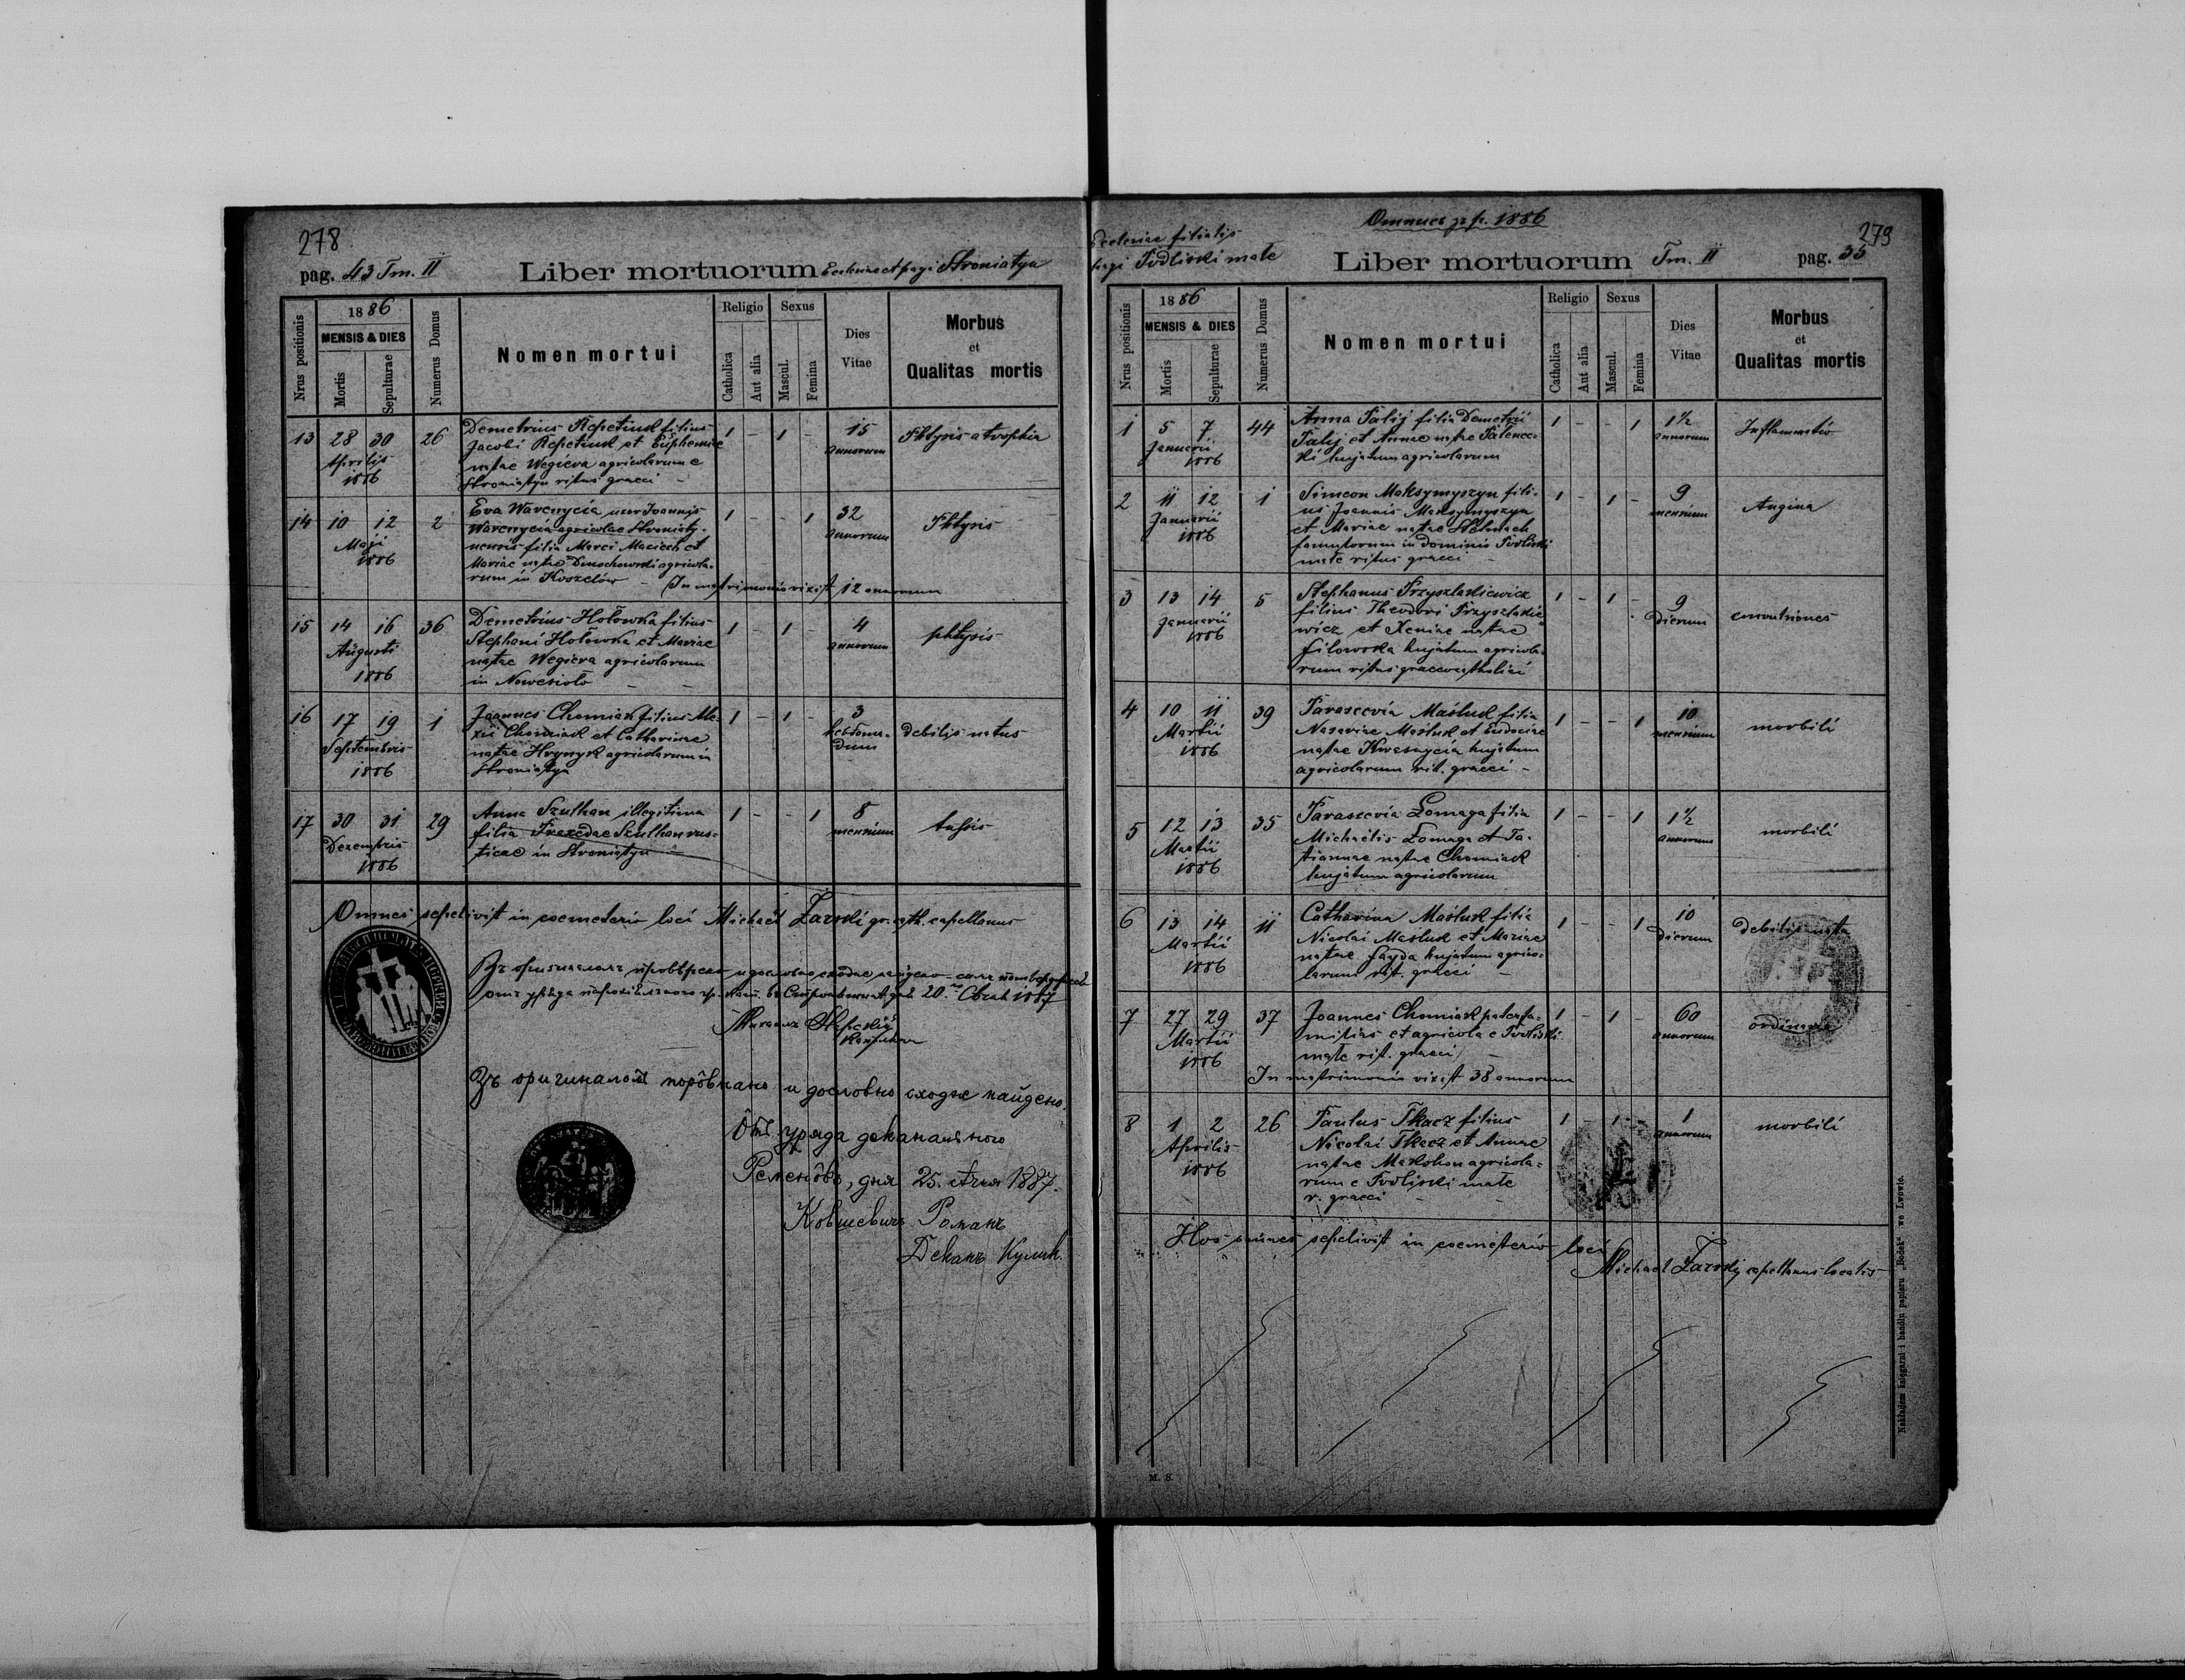 278
pag. 43 Tm. II Liber mortuorum Ecclesiae et pagi Stroniatyn
Nrus positionis
1886
MENSIS & DIES
Mortis
Sepulturae
Numerus Domus
Nomen mortui
Religio
Catholica
Aut alia
Sexus
Mascul.
Femina
Dies
Vitae
Morbus
et
Qualitas mortis
13 28 30 26 Demetrius Repetiuk filius 1 - 1 - 15 Phtysis atrophia
Aprilis Jacobi Repetiuk et Euphemiae annorum
1886 natae Wegiera agricolarum e
Stroniatyn ritus graeci
14 10 12 2 Eva Warenycia uxor Joannis 1 - - 1 32 Phtysis
Maji Warenycia agricolae Stroniaty-
1886 nensis filia Marci Maciech et annorum
Mariae natae agricola-
rum in Koszelów - In matrimonio vixit 12 annorum
15 14 16 36 Demetrius Hołowka filius 1 - 1 - 4 phtysis
Augusti Stephani Hołowka et Mariae annorum
1886 natae Wegiera agricolarum
in Nowesioło
16 17 19 1 Joannes Chomiak filius Ale- 1 - 1 - 3 debilis natus
Septembris xii Chomiak et Catharinae hebdoma-
1886 natae Hrynyk agricolarum in dum
Stroniatyn
17 30 31 29 Anna Szulhan illegitima 1 - - 1 8 tussis
Dezembris filia Szulhan rus- mensium
1886 ticae in Stroniatyn
Omnes sepelivit in coemeterio loci Michaël Żarski gr. cath. capellanus
20. 1887
Зъ оригиналомъ порôвнано и дословно сходне найдено.
Ôтъ уряда деканального
Ременôвъ, дня 25. 1887.
Ковшевичъ Романъ
Деканъ Кулик.
Omnues pr. 1886
279
Ecclesiae filialis
pagi Podliski małe Liber mortuorum Tm. II pag. 35
Nrus positionis
1886
MENSIS & DIES
Mortis
Sepulturae
Numerus Domus
Nomen mortui
Religio
Catholica
Aut alia
Sexus
Mascul.
Femina
Dies
Vitae
Morbus
et
Qualitas mortis
1 5 7 44 Anna Palij filia Demetrii 1 - - 1 1½ Inflammatio
Januarii Palij et Annae natae annorum
1886 hujatum agricolarum
2 11 12 1 Simeon Maksymyszyn fili- 1 - 1 - 9 Angina
Januarii us Joannis Maksymyszyn mensium
1886 et Mariae natae Stelmach
famulorum in dominio Podliski
małe ritus graeci
3 13 14 5 Stephanus Przyszlakiewicz 1 - 1 - 9 convulsiones
Januarii filius Theodori Przyszlakie- dierum
1886 wicz et Xeniae natae
Filowska hujatum agricola-
rum ritus graeco catholici
4 10 11 39 Parascevia Masluk filia 1 - - 1 10 morbili
Martii Masluk et Eudociae mensium
1886 natae hujatum
agricolarum rit. graeci -
5 12 13 35 Parascevia Łomaga filia 1 - - 1 1½ morbili
Martii Michaëlis Łomaga et Ta- annorum
1886 tiannae natae Chomiak
hujatum agricolarum
6 13 14 11 Catharina Masluk filia 1 - - 1 10 debilis nata
Martii Nicolai Masluk et Mariae dierum
1886 natae Fayda hujatum agrico-
larum rit. graeci
7 27 29 37 Joannes Chomiak paterfa- 1 - 1 - 60 ordinaria
Martii milias et agricola e Podliski annorum
1886 małe rit. graeci
In matrimonio vixit 38 annorum
8 1 2 26 Paulus Tkacz filius 1 - 1 - 1 morbili
Aprilis Nicolai Tkacz et Annae annorum
1886 natae agricola-
rum e Podliski małe
r. graeci
Hos omnes sepelivit in coemeterio loci
Michael Żarskij capellanus localis
M. S.
Nakładem księgarni i handlu papieru „Bodek” we Lwowie.